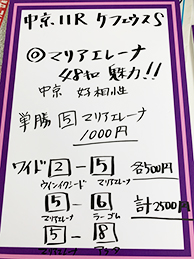 中京11R ケフェウスS
◎ マリアエレーナ
48キロ 魅力!!
中京 好相性
単勝 5 マリアエレーナ
1000円
ワイド 2 - 5 各500円
ウインイクシード マリアエレーナ
5 - 6 計2500円
マリアエレーナ ラーゴム
5 - 8
マリアエレーナ